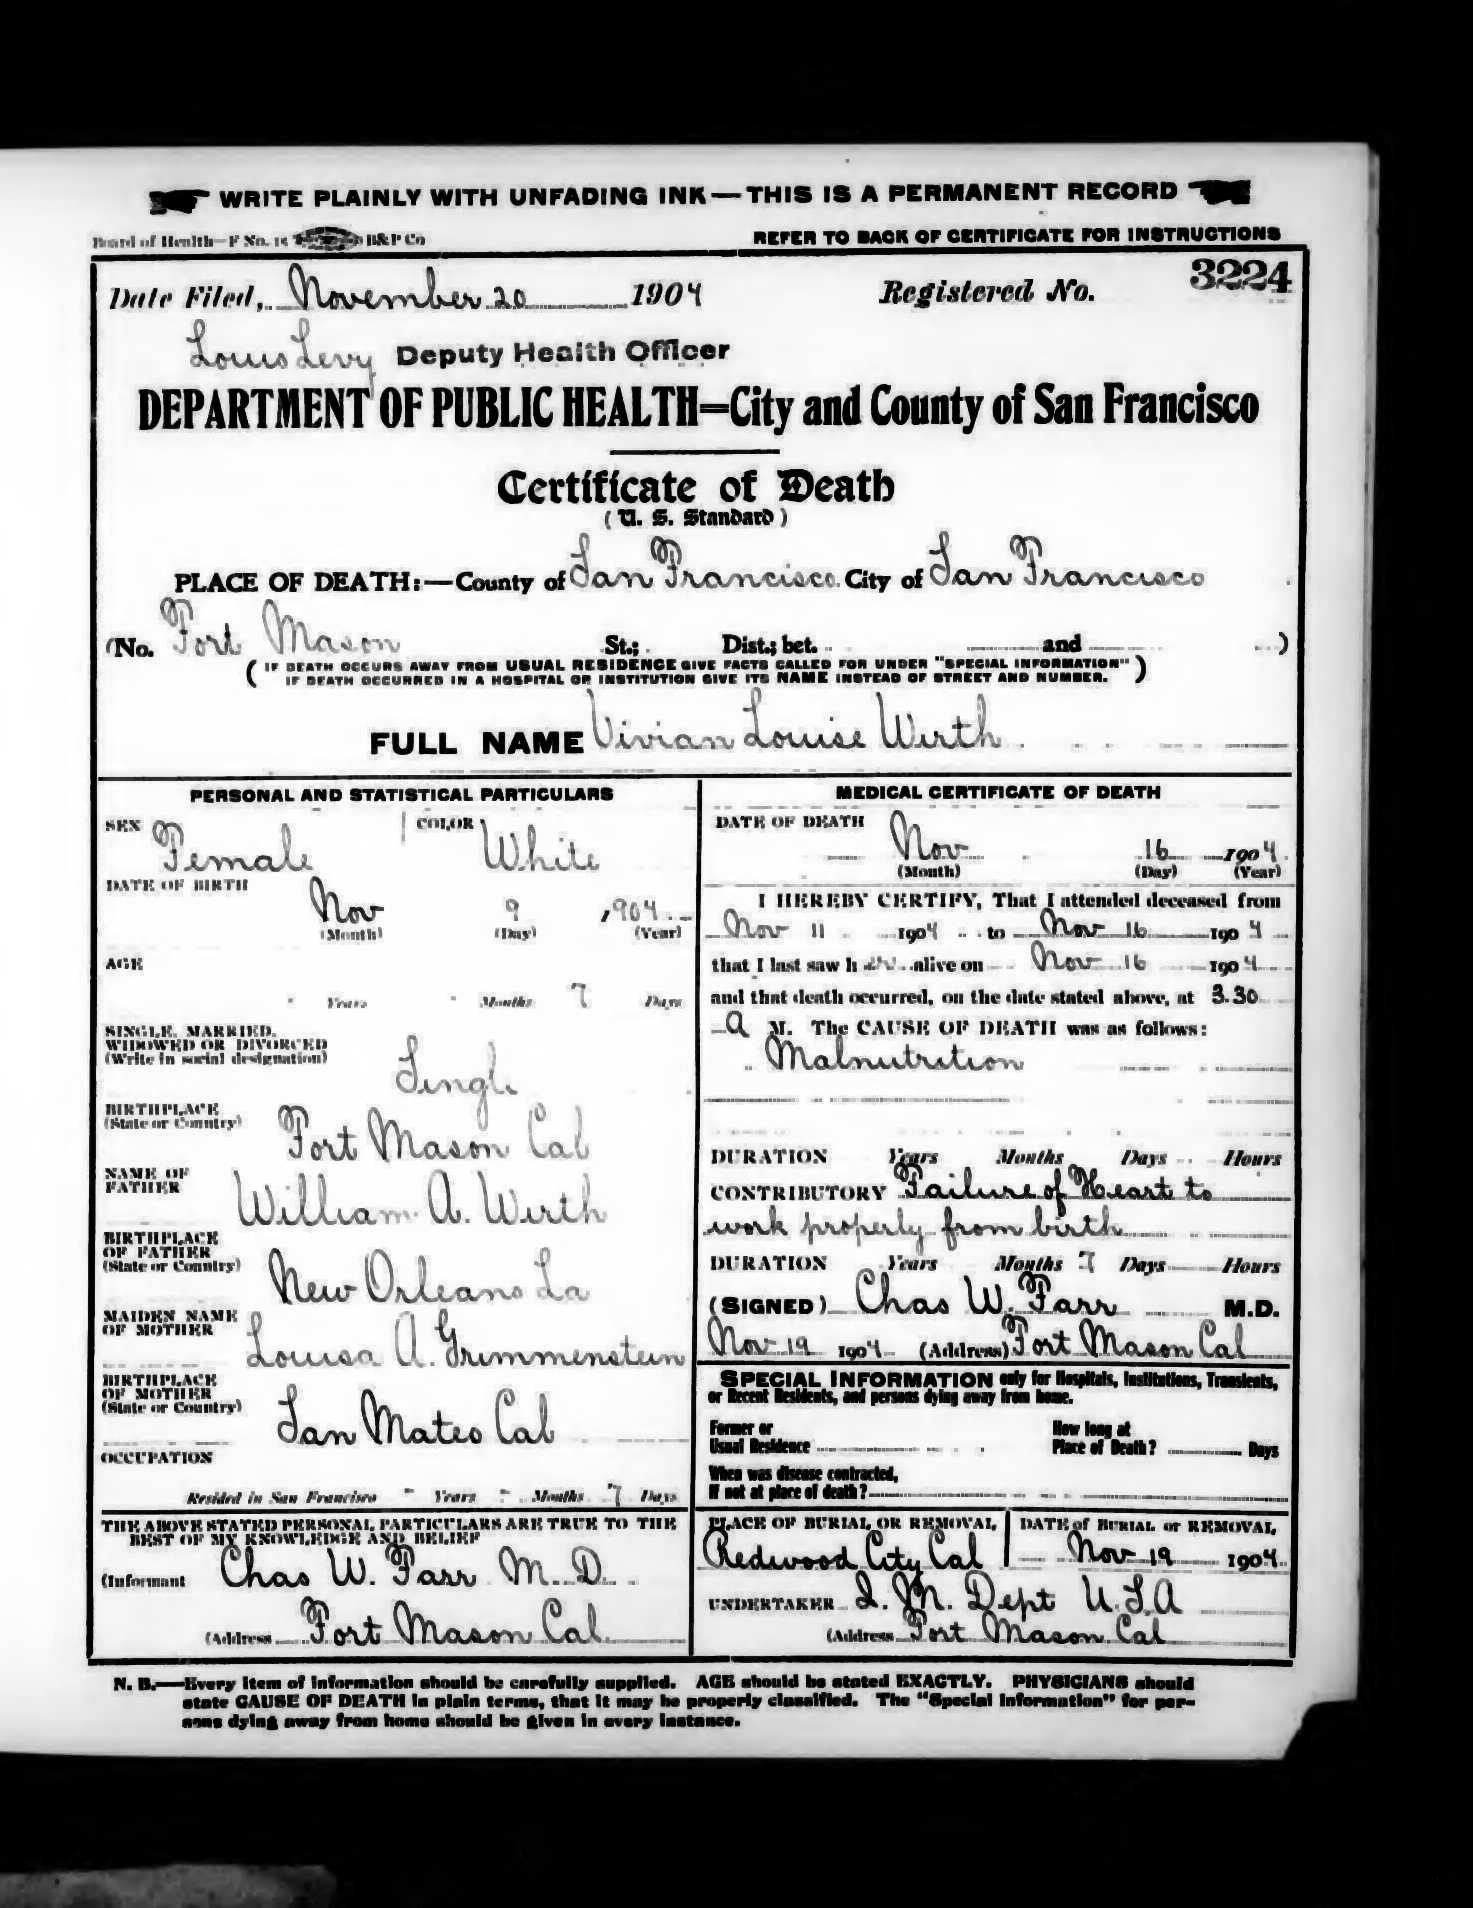 WRITE PLAINLY WITH UNFADING INK—THIS IS A PERMANENT RECORD
Board of Health—F No. 15 B&P Co
REFER TO BACK OF CERTIFICATE FOR INSTRUCTIONS
Date Filed, November 20 1904 Registered No. 3224
Louis Levy Deputy Health Officer
DEPARTMENT OF PUBLIC HEALTH=City and County of San Francisco
Certificate of Death
(U. S. Standard)
PLACE OF DEATH:—County of San Francisco City of San Francisco
(No. Fort Mason St.; Dist.; bet. and )
(IF DEATH OCCURS AWAY FROM USUAL RESIDENCE GIVE FACTS CALLED FOR UNDER "SPECIAL INFORMATION"
IF DEATH OCCURRED IN A HOSPITAL OR INSTITUTION GIVE ITS NAME INSTEAD OF STREET AND NUMBER.)
FULL NAME Vivian Louise Wirth
PERSONAL AND STATISTICAL PARTICULARS
SEX Female COLOR White
DATE OF BIRTH
Nov 9 , 904
(Month) (Day) (Year)
AGE
" Years " Months 7 Days
SINGLE, MARRIED,
WIDOWED OR DIVORCED
(Write in social designation)
Single
BIRTHPLACE
(State or Country)
Fort Mason Cal
NAME OF
FATHER
William A. Wirth
BIRTHPLACE
OF FATHER
(State or Country)
New Orleans La
MAIDEN NAME
OF MOTHER
Louisa A. Grimmenstein
BIRTHPLACE
OF MOTHER
(State or Country)
San Mateo Cal
OCCUPATION
Resided in San Francisco " Years " Months 7 Days
THE ABOVE STATED PERSONAL PARTICULARS ARE TRUE TO THE
BEST OF MY KNOWLEDGE AND BELIEF
(Informant Chas W. Farr M. D.
(Address Fort Mason Cal.
MEDICAL CERTIFICATE OF DEATH
DATE OF DEATH
Nov 16 1904
(Month) (Day) (Year)
I HEREBY CERTIFY, That I attended deceased from
Nov 11 1904 to Nov 16 1904
that I last saw h er alive on Nov 16 1904
and that death occurred, on the date stated above, at 3.30
a M. The CAUSE OF DEATH was as follows:
Malnutrition
DURATION Years Months Days Hours
CONTRIBUTORY Failure of Heart to
work properly from birth
DURATION Years Months 7 Days Hours
(SIGNED) Chas W. Farr M.D.
Nov 19 1904 (Address) Fort Mason Cal
SPECIAL INFORMATION only for Hospitals, Institutions, Transients,
or Recent Residents, and persons dying away from home.
Former or
Usual Residence
How long at
Place of Death? Days
When was disease contracted,
If not at place of death?
PLACE OF BURIAL OR REMOVAL
Redwood City Cal
DATE of BURIAL or REMOVAL
Nov 19 1904
UNDERTAKER Q. M. Dept U.S.A
(Address Fort Mason Cal
N. B.—Every item of information should be carefully supplied. AGE should be stated EXACTLY. PHYSICIANS should
state CAUSE OF DEATH in plain terms, that it may be properly classified. The "Special Information" for per-
sons dying away from home should be given in every instance.